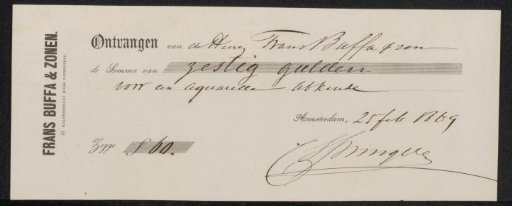 FRANS BUFFA & ZONEN.
Ontvangen van de Heer Frans Buffa & zn
de Somma van zestig gulden
voor een aquarel
Amsterdam, 25 feb 1869
Zegge ƒ 60.